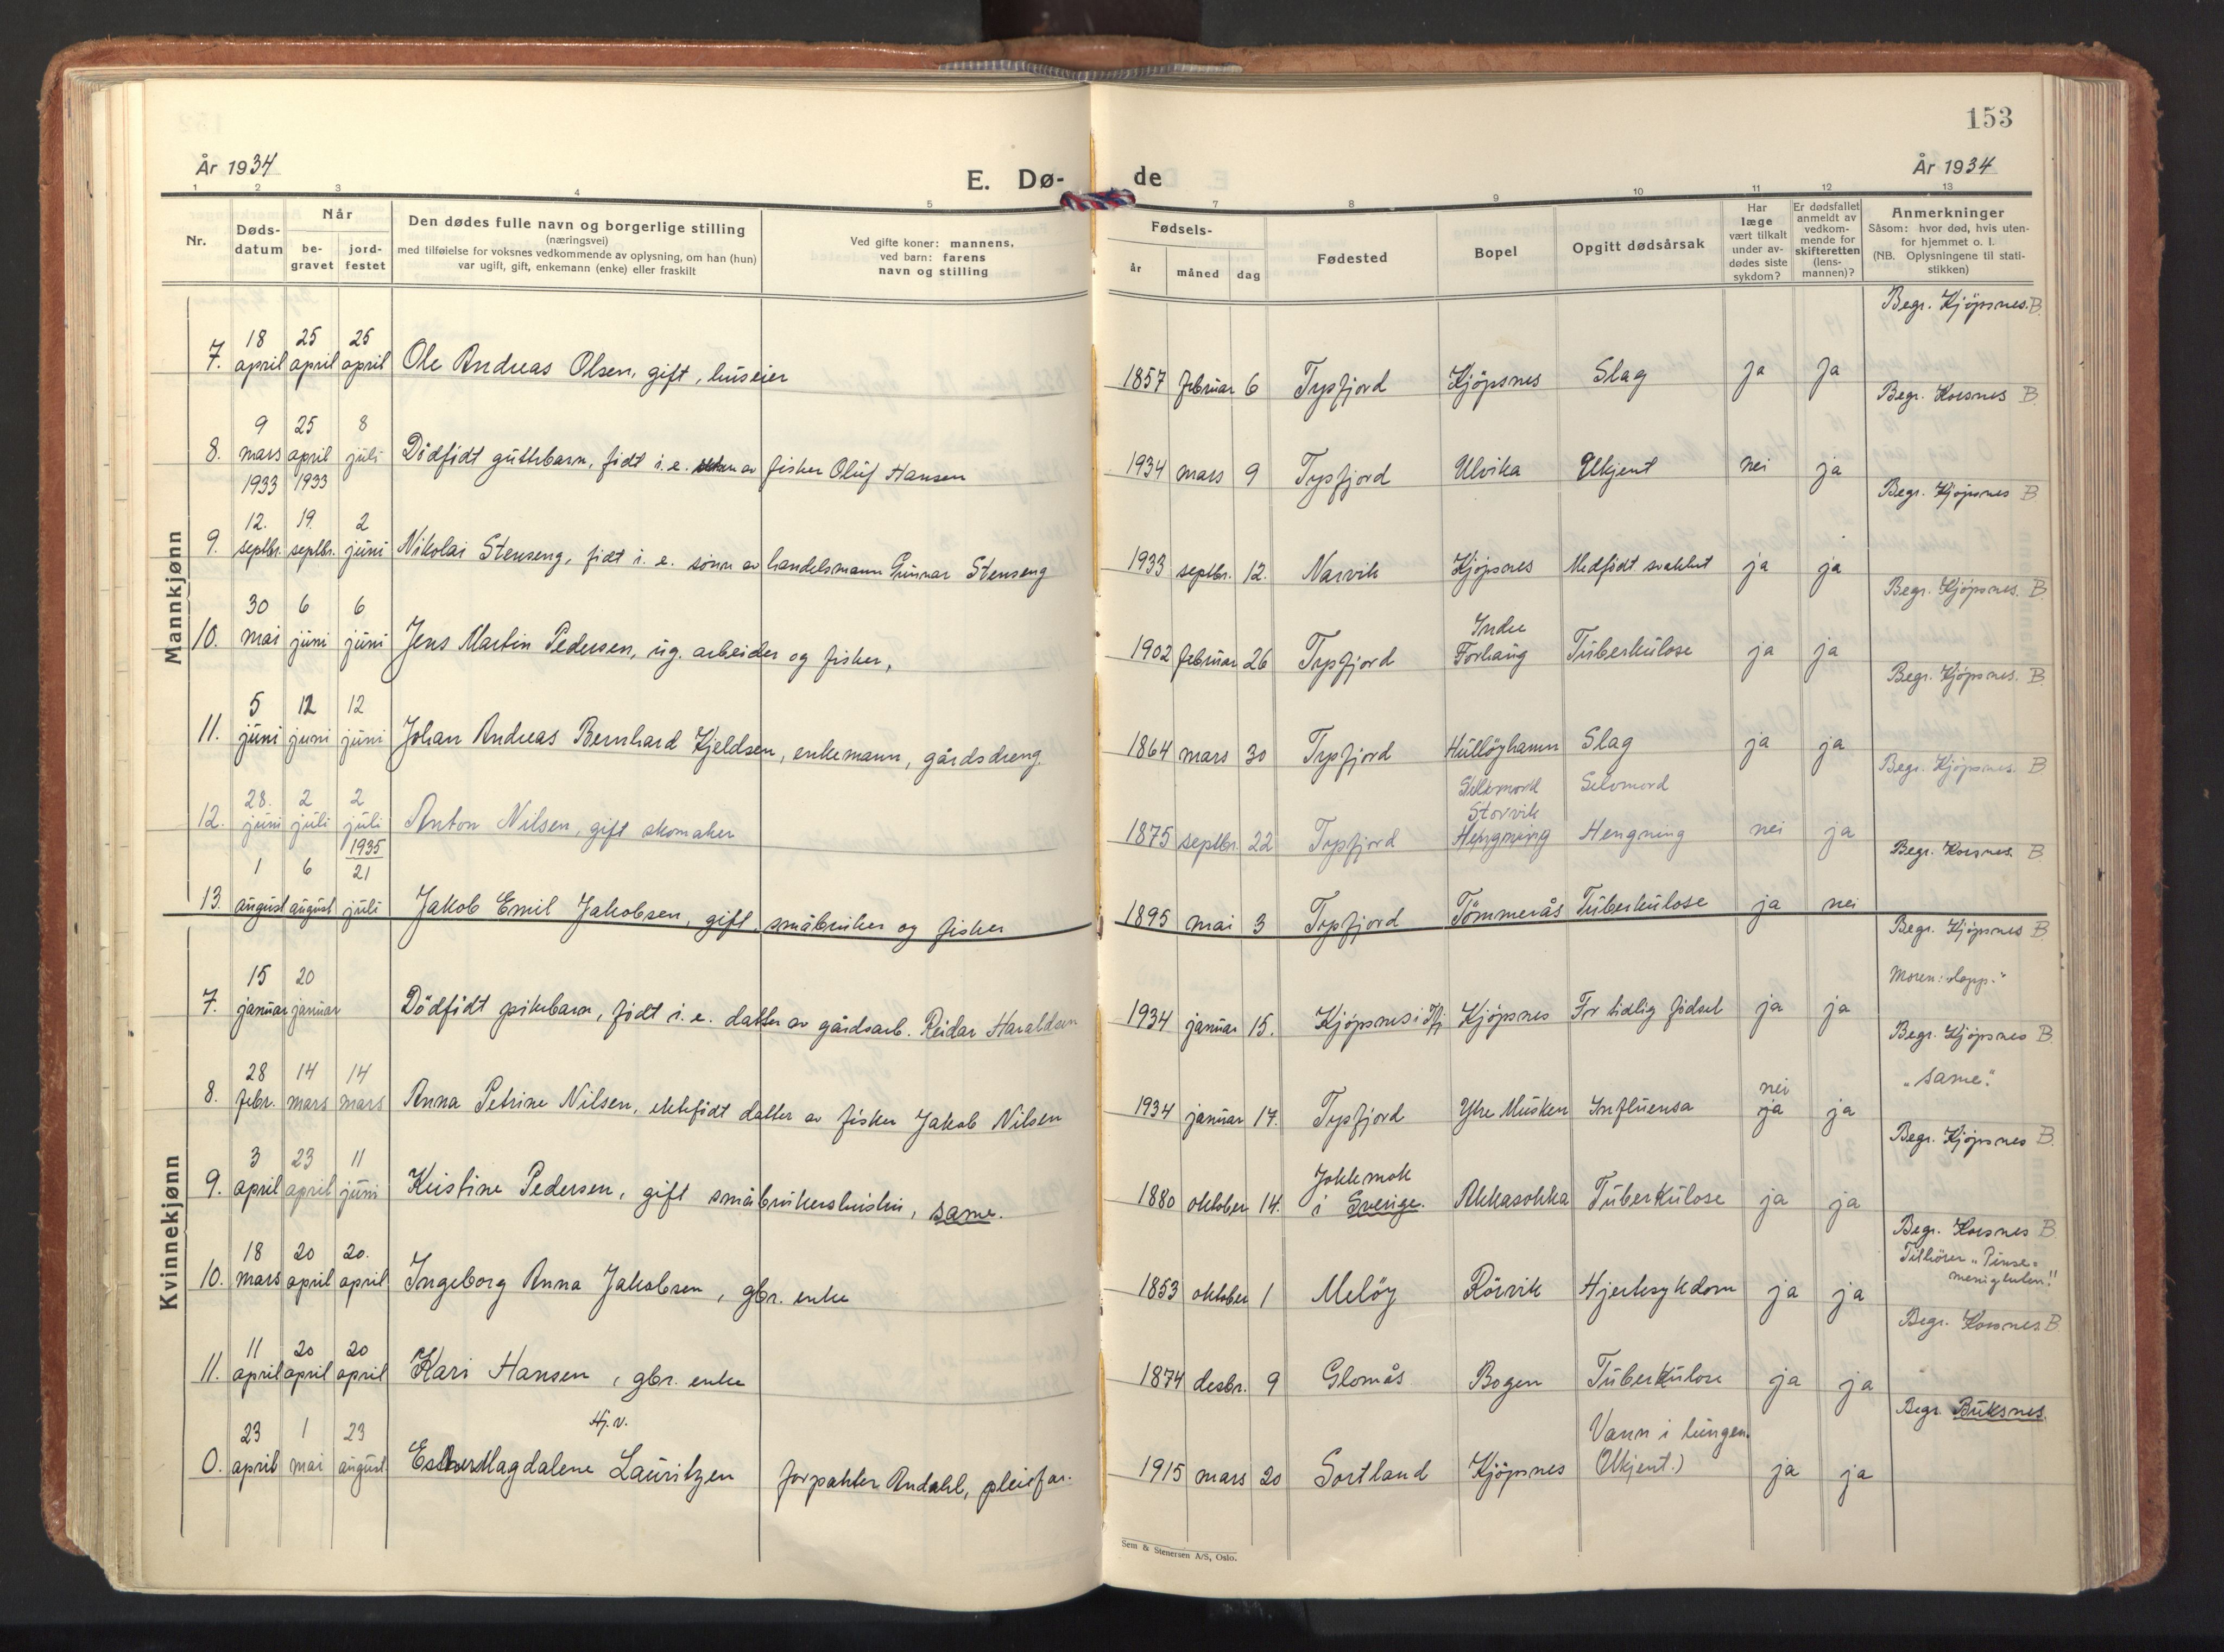 153
År 1934
E. Dø-
de
År 1934
1 2 3 4 5 7 8 9 10 11 12 13
Nr.
Døds-
datum
Når
be-
gravet
jord-
festet
Den dødes fulle navn og borgerlige stilling
(næringsvei)
med tilføielse for voksnes vedkommende av oplysning, om han (hun)
var ugift, gift, enkemann (enke) eller fraskilt
Ved gifte koner: mannens,
ved barn: farens
navn og stilling
Fødsels-
år måned dag
Fødested
Bopel
Opgitt dødsårsak
Har
læge
vært tilkalt
under av-
dødes siste
sykdom?
Er dødsfallet
anmeldt av
vedkom-
mende for
skifteretten
(lens-
mannen)?
Anmerkninger
Såsom: hvor død, hvis uten-
for hjemmet o. l.
(NB. Oplysningene til stati-
stikken)
Mannkjønn
Begr. Kjöpsnes. B.
18 25 25
7. april april april Ole Andreas Olsen, gift, huseier 1857 februar 6 Tysfjord Kjöpsnes Slag Ja Ja
Begr. Korsnes B.
9 25 8
8. mars april juli Dödfödt guttebarn, födt i. e. av fisker Oluf Hansen 1934 mars 9 Tysfjord Ulvika Ukjent nei ja
Begr. Kjöpsnes B
1933 1933
12. 19. 2
9. septbr. septbr. juni Nikolai Stenseng, födt i. e. sönn av handelsmann Gunnar Stenseng 1933 septbr. 12. Narvik Kjöpsnes Medfödt svakhet ja ja
Begr. Kjöpsnes. B.
30 6 6
10. mai juni juni Jens Martin Pedersen, ug. arbeider og fisker, 1902 februar 26 Tysfjord Indre
Forhaug Tuberkulose ja ja
Begr. Kjöpsnes. B.
5 12 12
11. juni juni juni Johan Andreas Bernhard Kjeldsen, enkemann, gårdsdreng. 1864 mars 30 Tysfjord Hullöyhamn Slag ja ja
Begr. Kjöpsnes. B
28. 2 2
Selvmord Selvmord
Storvik
12. juni juli juli Anton Nilsen, gift skomaker 1875 septbr. 22 Tysfjord Hengning Hengning nei ja
Begr. Korsnes. B.
1935
1 6 21
13. august august juli Jakob Emil Jakobsen, gift, småbruker og fisker 1895 mai 3 Tysfjord Tömmerås Tuberkulose ja nei
Kvinnekjønn
Begr. Kjöpsnes B
Moren: "lapp."
15 20
7. januar januar Dödfödt pikebarn, födt i. e. datter av gårdsarb. Reidar Haraldsen 1934 januar 15. Kjöpsnes i Tfj. Kjöpsnes For tidlig födsel ja ja
Begr. Kjöpsnes B.
"same".
28 14 14
8. febr. mars mars Anna Petrine Nilsen, ektefödt datter av fisker Jakob Nilsen 1934 januar 17. Tysfjord Ytre Musken Influensa nei
ja ja
Begr. Kjöpsnes B.
3 23 11
9. april april juni Kristine Pedersen, gift småbrukershustru, same. 1880 oktober 14. Jokkmok
i Sverige. Akkasokka Tuberkulose ja ja
Begr. Korsnes B
Tilhörer "Pinse-
menigheten."
18 20 20.
10. mars april april Ingeborg Anna Jakobsen, gbr. enke 1853 oktober 1 Melöy Rörvik Hjertesykdom ja ja
Begr. Korsnes. B
11 20 20
11. april april april Kari Hansen, gbr. enke 1874 desbr. 9 Glomås Bogen Tuberkulose ja ja
Begr. Buksnes.
Hj. v.
23 1 23
0. april mai august Esther Magdalene Lauritzen forpakter Andahl, pleiefar. 1915 mars 20 Sortland Kjöpsnes Vann i lungen.
(Ukjent.) ja ja
Sem & Stenersen A/S, Oslo.